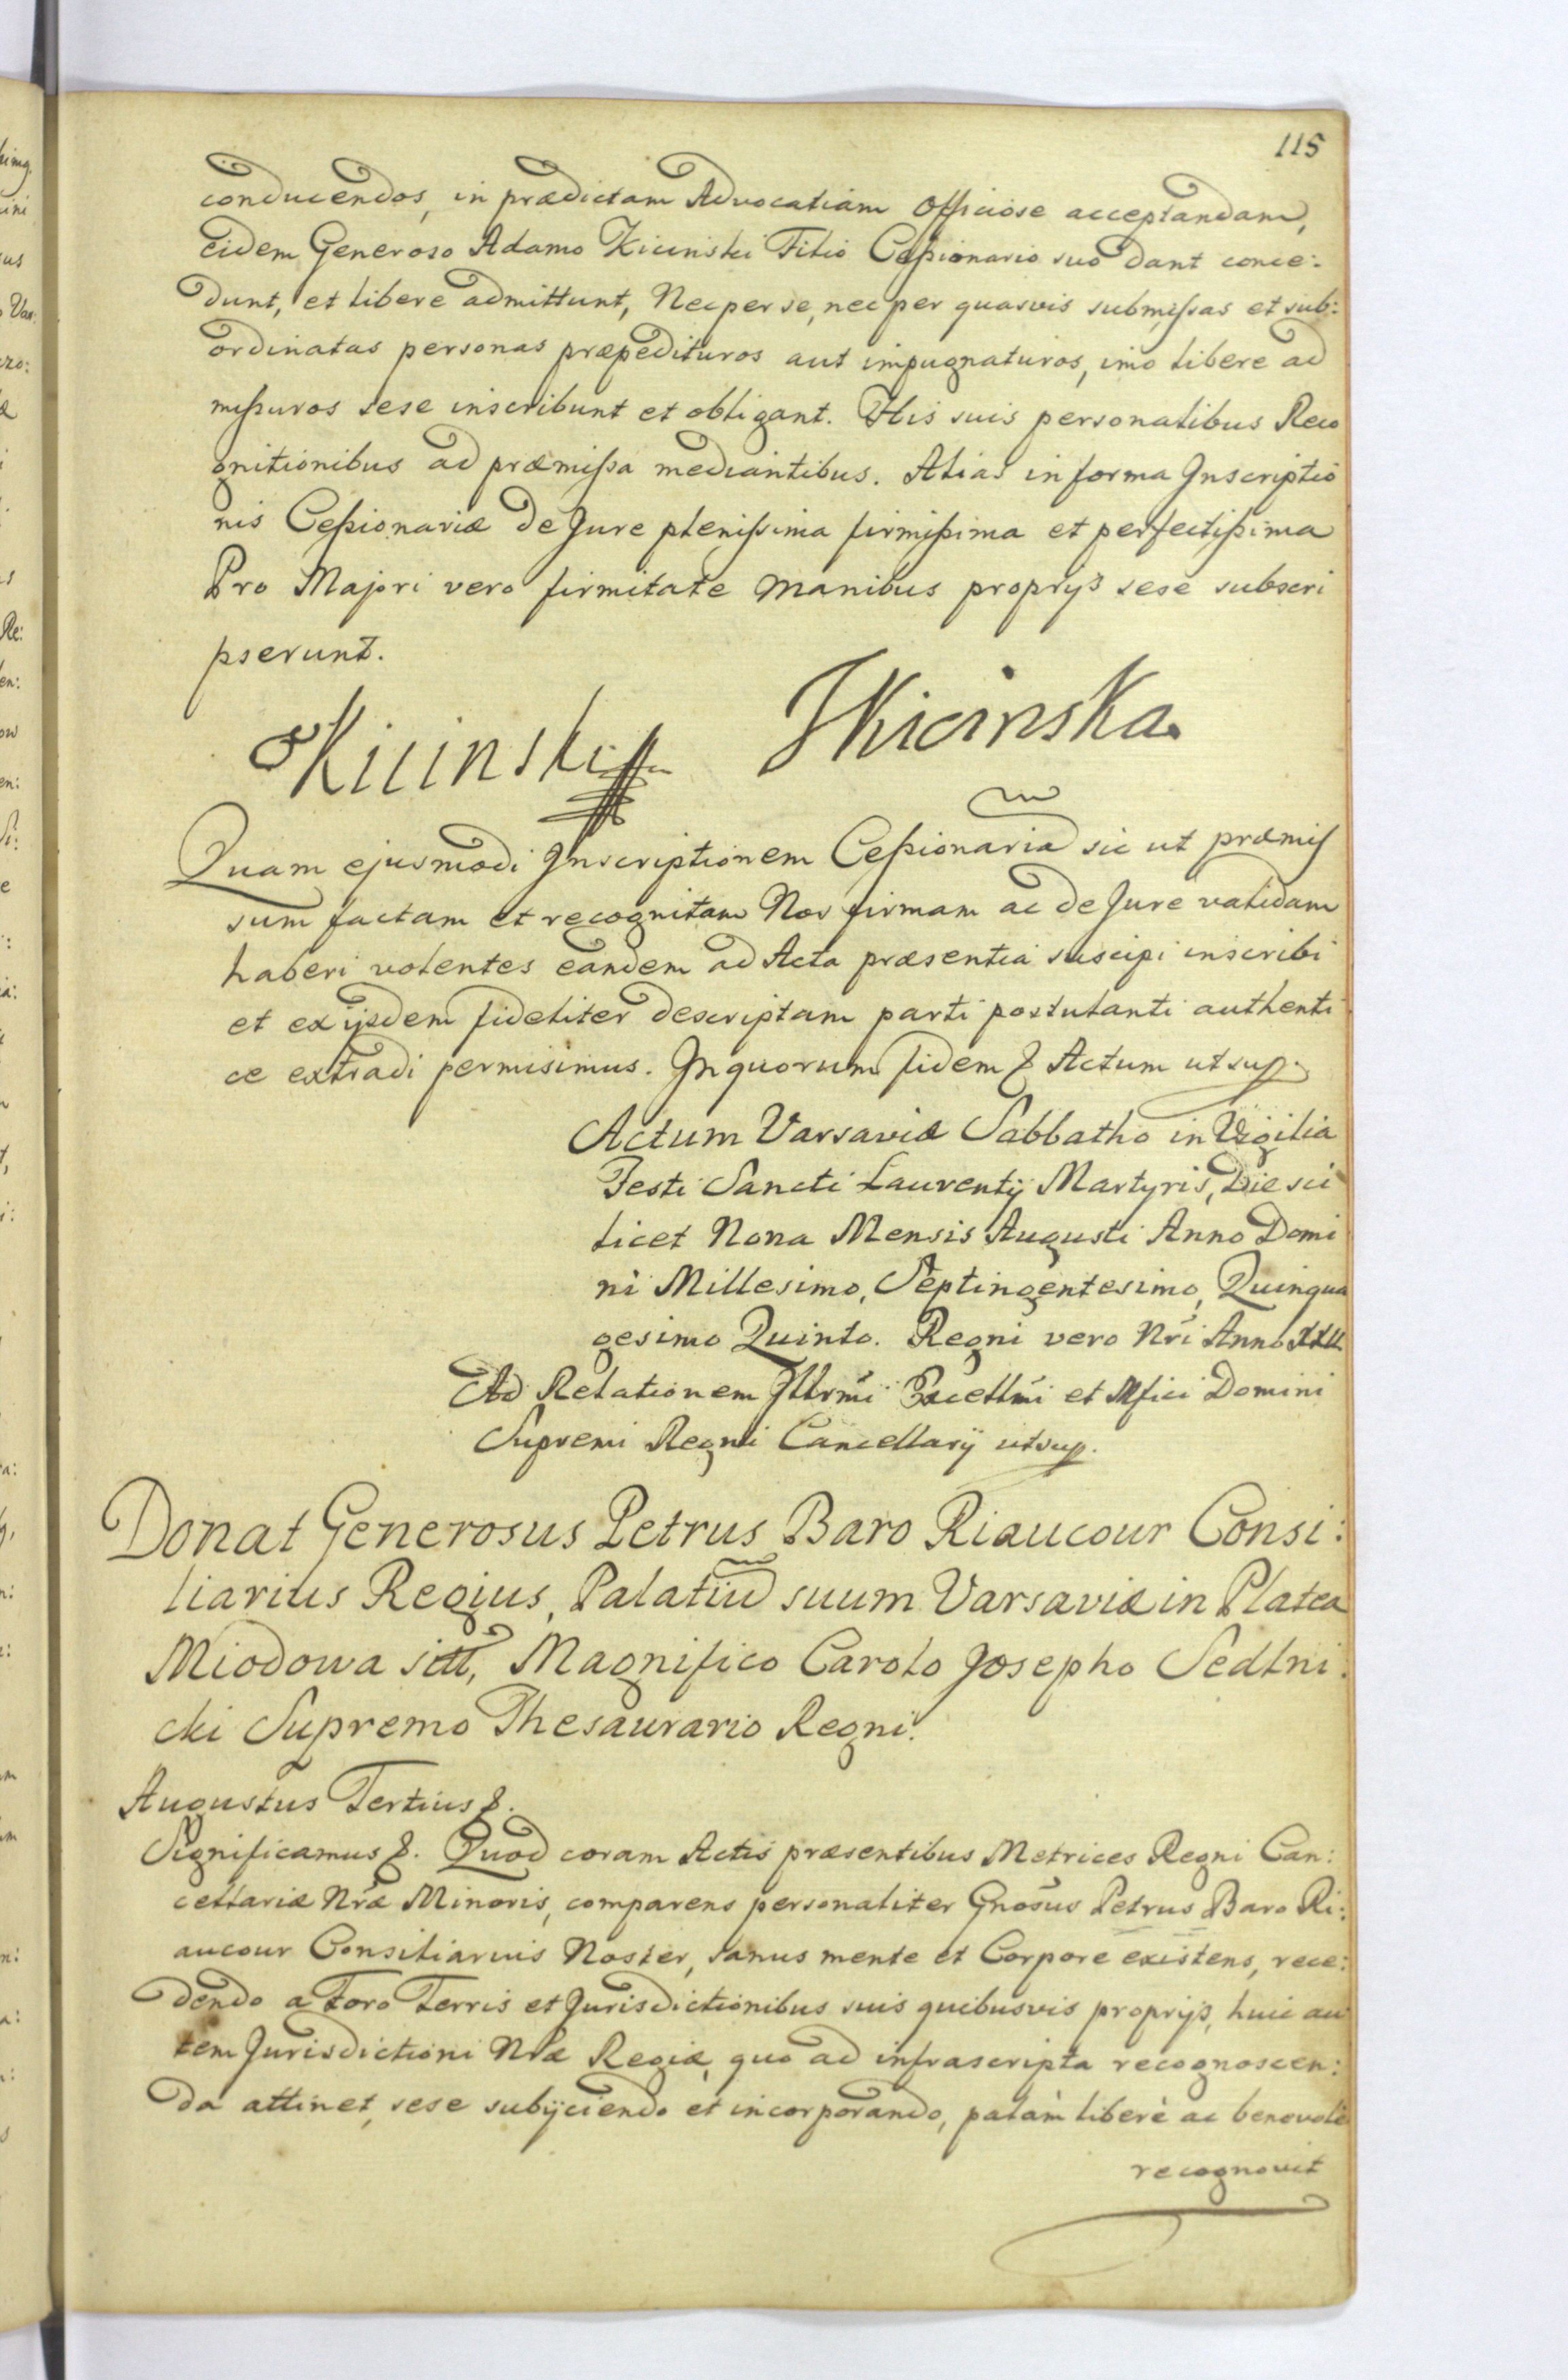 115
conducendos, in prædictam Advocatiam Officiose acceptandam,
eidem Generoso Adamo Kicinski Filio Cessionario suo dant conce:
dunt, et libere admittunt, Nec per se, nec per quasvis submissas et sub:
ordinatas personas præpedituros aut impugnaturos, imo libere ad
missuros sese inscribunt et obligant. His suis personalibus Reco
gnitionibus ad præmissa mediantibus. Alias in forma Inscriptio
nis Cessionariæ de Jure plenissima firmissima et perfectissima
Pro Majori vero firmitate manibus proprijs sese subscri
pserunt.
Kicinski
JKicinska
Quam ejusmodi Inscriptionem Cessionaria sic ut præmis
sum factam et recognitam Nos firmam ac de Jure validam
haberi volentes eandem ad Acta præsentia suscipi inscribi
et ex ijsdem fideliter descriptam parti postulanti authenti
ce extradi permisimus. In quorum fidem & Actum ut sup.
Actum Varsaviæ Sabbatho in Vigilia
Festi Sancti Laurentij Martyris, Die sci
licet Nona Mensis Augusti Anno Domi
ni Millesimo, Septingentesimo, Quinqua
gesimo Quinto. Regni vero Nri Anno XXII
Ad Relationem Illrmi Excellmi et Mfici Domini
Supremi Regni Cancellarij ut sup.
Donat Generosus Petrus Baro Riaucour Consi:
liarius Regius, Palatiu suum Varsaviæ in Platea
Miodowa sitt, Magnifico Carolo Josepho Sedlni:
cki Supremo Thesaurario Regni.
Augustus Tertius &.
Significamus &. Quod coram Actis præsentibus Metrices Regni Can:
cellariæ Nræ Minoris, comparens personaliter Gnosus Petrus Baro Ri:
aucour Consiliarius Noster, sanus mente et Corpore existens, rece:
dendo a Foro Terris et Jurisdictionibus suis quibusvis proprijs, huic au
tem Jurisdictioni Nræ Regiæ, quo ad infrascripta recognoscen:
da attinet, sese subijciendo et incorporando, palàm liberè ac benevolè
recognovit